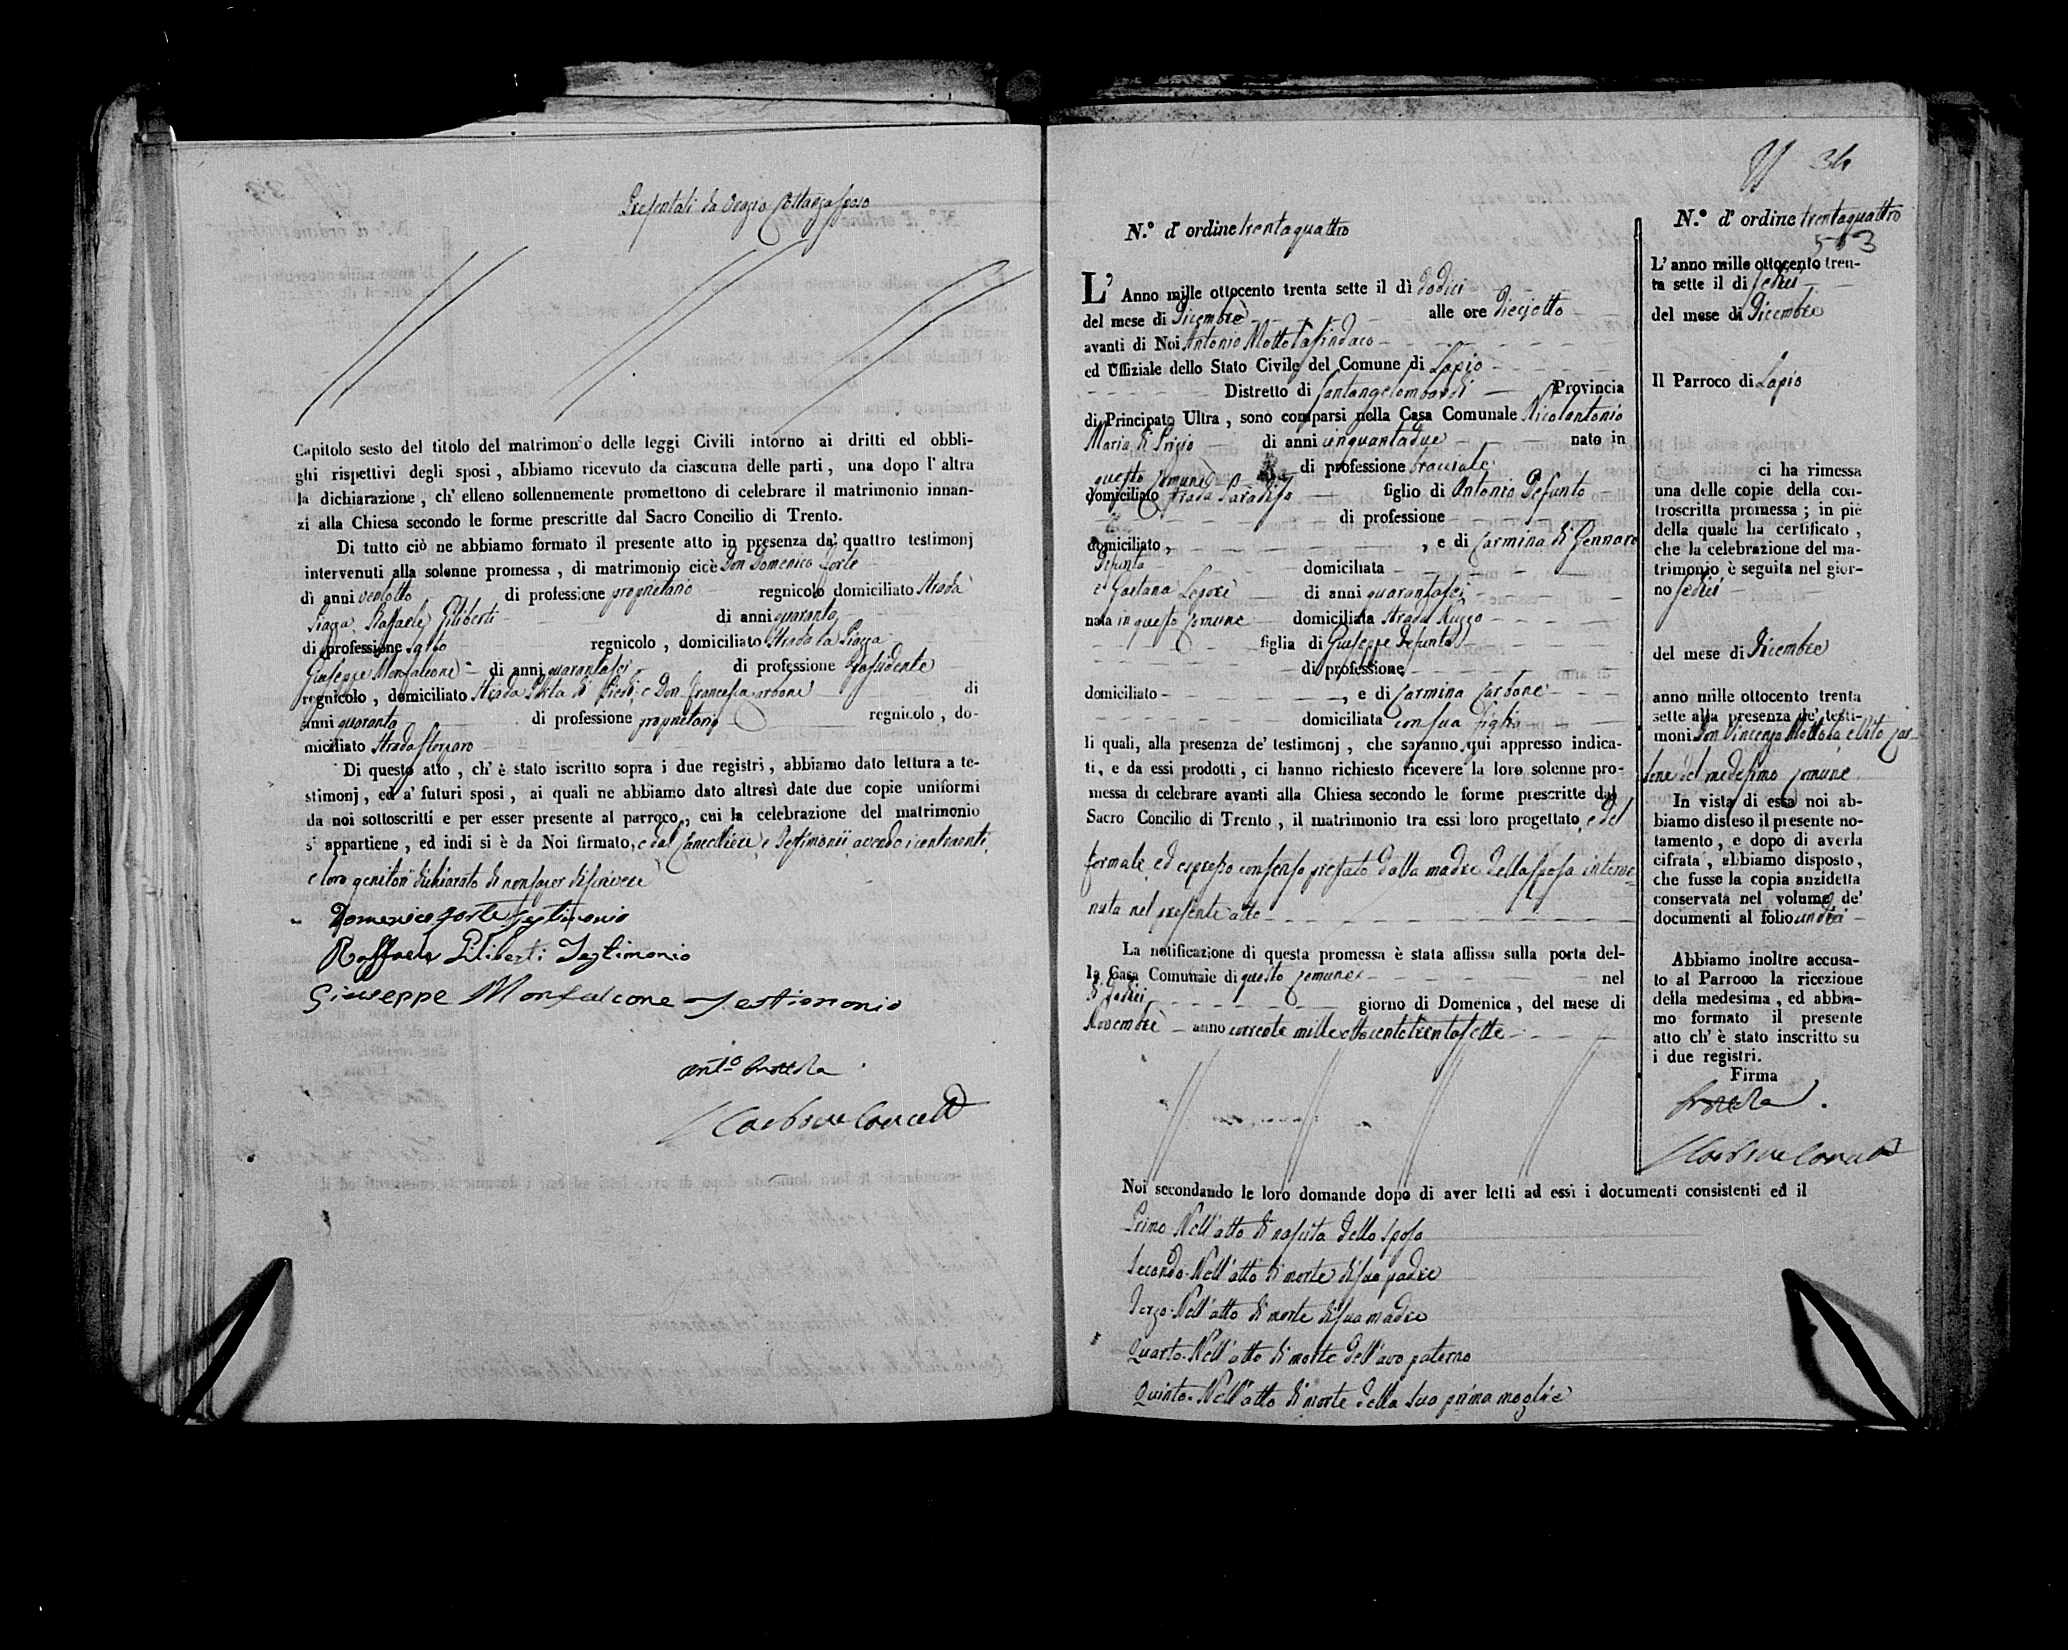 Presentati da Orazio Costanza sposo
Capitolo sesto del titolo del matrimonio delle leggi Civili intorno ai dritti ed obbli-
ghi rispettivi degli sposi, abbiamo ricevuto da ciascuna delle parti, una dopo l'altra
la dichiarazione, ch'elleno sollennemente promettono di celebrare il matrimonio innan-
zi alla Chiesa secondo le forme prescritte dal Sacro Concilio di Trento.
Di tutto ciò ne abbiamo formato il presente atto in presenza da' quattro testimonj
intervenuti alla solenne promessa, di matrimonio cioè Don Domenico Forte
di anni ventotto di professione proprietario regnicolo domiciliato Strada
Piazza, Raffaele Filiberti di anni quaranta
di professione regnicolo, domiciliato Strada la Piazza
Giuseppe Monfalcone di anni quarantasei di professione
regnicolo, domiciliato Strada Porta di e Don Francesco Carbone di
anni quaranta di professione proprietario regnicolo, do-
miciliato Strada
Di questo atto, ch'è stato iscritto sopra i due registri, abbiamo dato lettura a te-
stimonj, ed a' futuri sposi, ai quali ne abbiamo dato altresì date due copie uniformi
da noi sottoscritti e per esser presente al parroco, cui la celebrazione del matrimonio
s'appartiene, ed indi si è da Noi firmato, e dal Cancelliere e Testimonii avendo i contraenti,
e loro genitori dichiarato di non saper scrivere
Domenico Forte Testimonio
Raffaele Filiberti Testimonio
Giuseppe Monfalcone Testimonio
Ant.o Mottola
Carbone Cancell
34
N.° d'ordine trentaquattro
L'Anno mille ottocento trenta sette il dì dodici
del mese di Dicembre alle ore dieciotto
avanti di Noi Antonio Mottola Sindaco
ed Uffiziale dello Stato Civile del Comune di Lapio
Distretto di Santangelombardi Provincia
di Principato Ultra, sono comparsi nella Casa Comunale Nicolantonio
Maria di Prizio di anni cinquantadue nato in
questo Comune di professione bracciale
domiciliato Strada Paradiso figlio di Antonio Defunto
di professione
domiciliato, , e di Carmina di Gennaro
Defunta domiciliata
e Gaetana Lepore di anni quarantasei
nata in questo Comune domiciliata Strada
figlia di Giuseppe Defunto
di professione
domiciliato , e di Carmina Carbone
domiciliata con sua figlia
li quali, alla presenza de' testimonj, che saranno qui appresso indica-
ti, e da essi prodotti, ci hanno richiesto ricevere la loro solenne pro-
messa di celebrare avanti alla Chiesa secondo le forme prescritte dal
Sacro Concilio di Trento, il matrimonio tra essi loro progettato, e del
formale, ed espresso consenso prestato dalla madre della sposa interve-
nuta nel presente atto
La notificazione di questa promessa è stata affissa sulla porta del-
la Casa Comunale di questo Comune nel
giorno di Domenica, del mese di
Novembre anno corrente mille ottocento trentasette
Noi secondando le loro domande dopo di aver letti ad essi i documenti consistenti ed il
Primo. Nell'atto di nascita dello sposo
Secondo. Nell'atto di morte di suo padre
Terzo. Nell'atto di morte di sua madre
Quarto. Nell'atto di morte dell'avo paterno
Quinto. Nell'atto di morte della sua prima moglie
N.° d'ordine trentaquattro
L'anno mille ottocento tren-
ta sette il di sedici
del mese di Dicembre
Il Parroco di Lapio
ci ha rimessa
una delle copie della con-
troscritta promessa; in piè
della quale ha certificato,
che la celebrazione del ma-
trimonio è seguita nel gior-
no sedici
del mese di Dicembre
anno mille ottocento trenta
sette alla presenza de' testi-
moni Don Vincenzo Mottola, e Vito Car-
bone del medesimo Comune
In vista di essa noi ab-
biamo disteso il presente no-
tamento, e dopo di averla
cifrata, abbiamo disposto,
che fusse la copia anzidetta
conservata nel volume de'
documenti al folio undici
Abbiamo inoltre accusa-
to al Parroco la ricezione
della medesima, ed abbia-
mo formato il presente
atto ch'è stato inscritto su
i due registri.
Firma
Mottola
Carbone Cancell